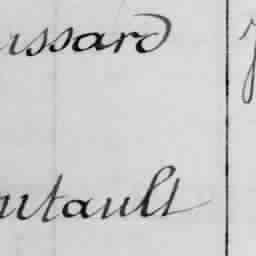 ussard
utault